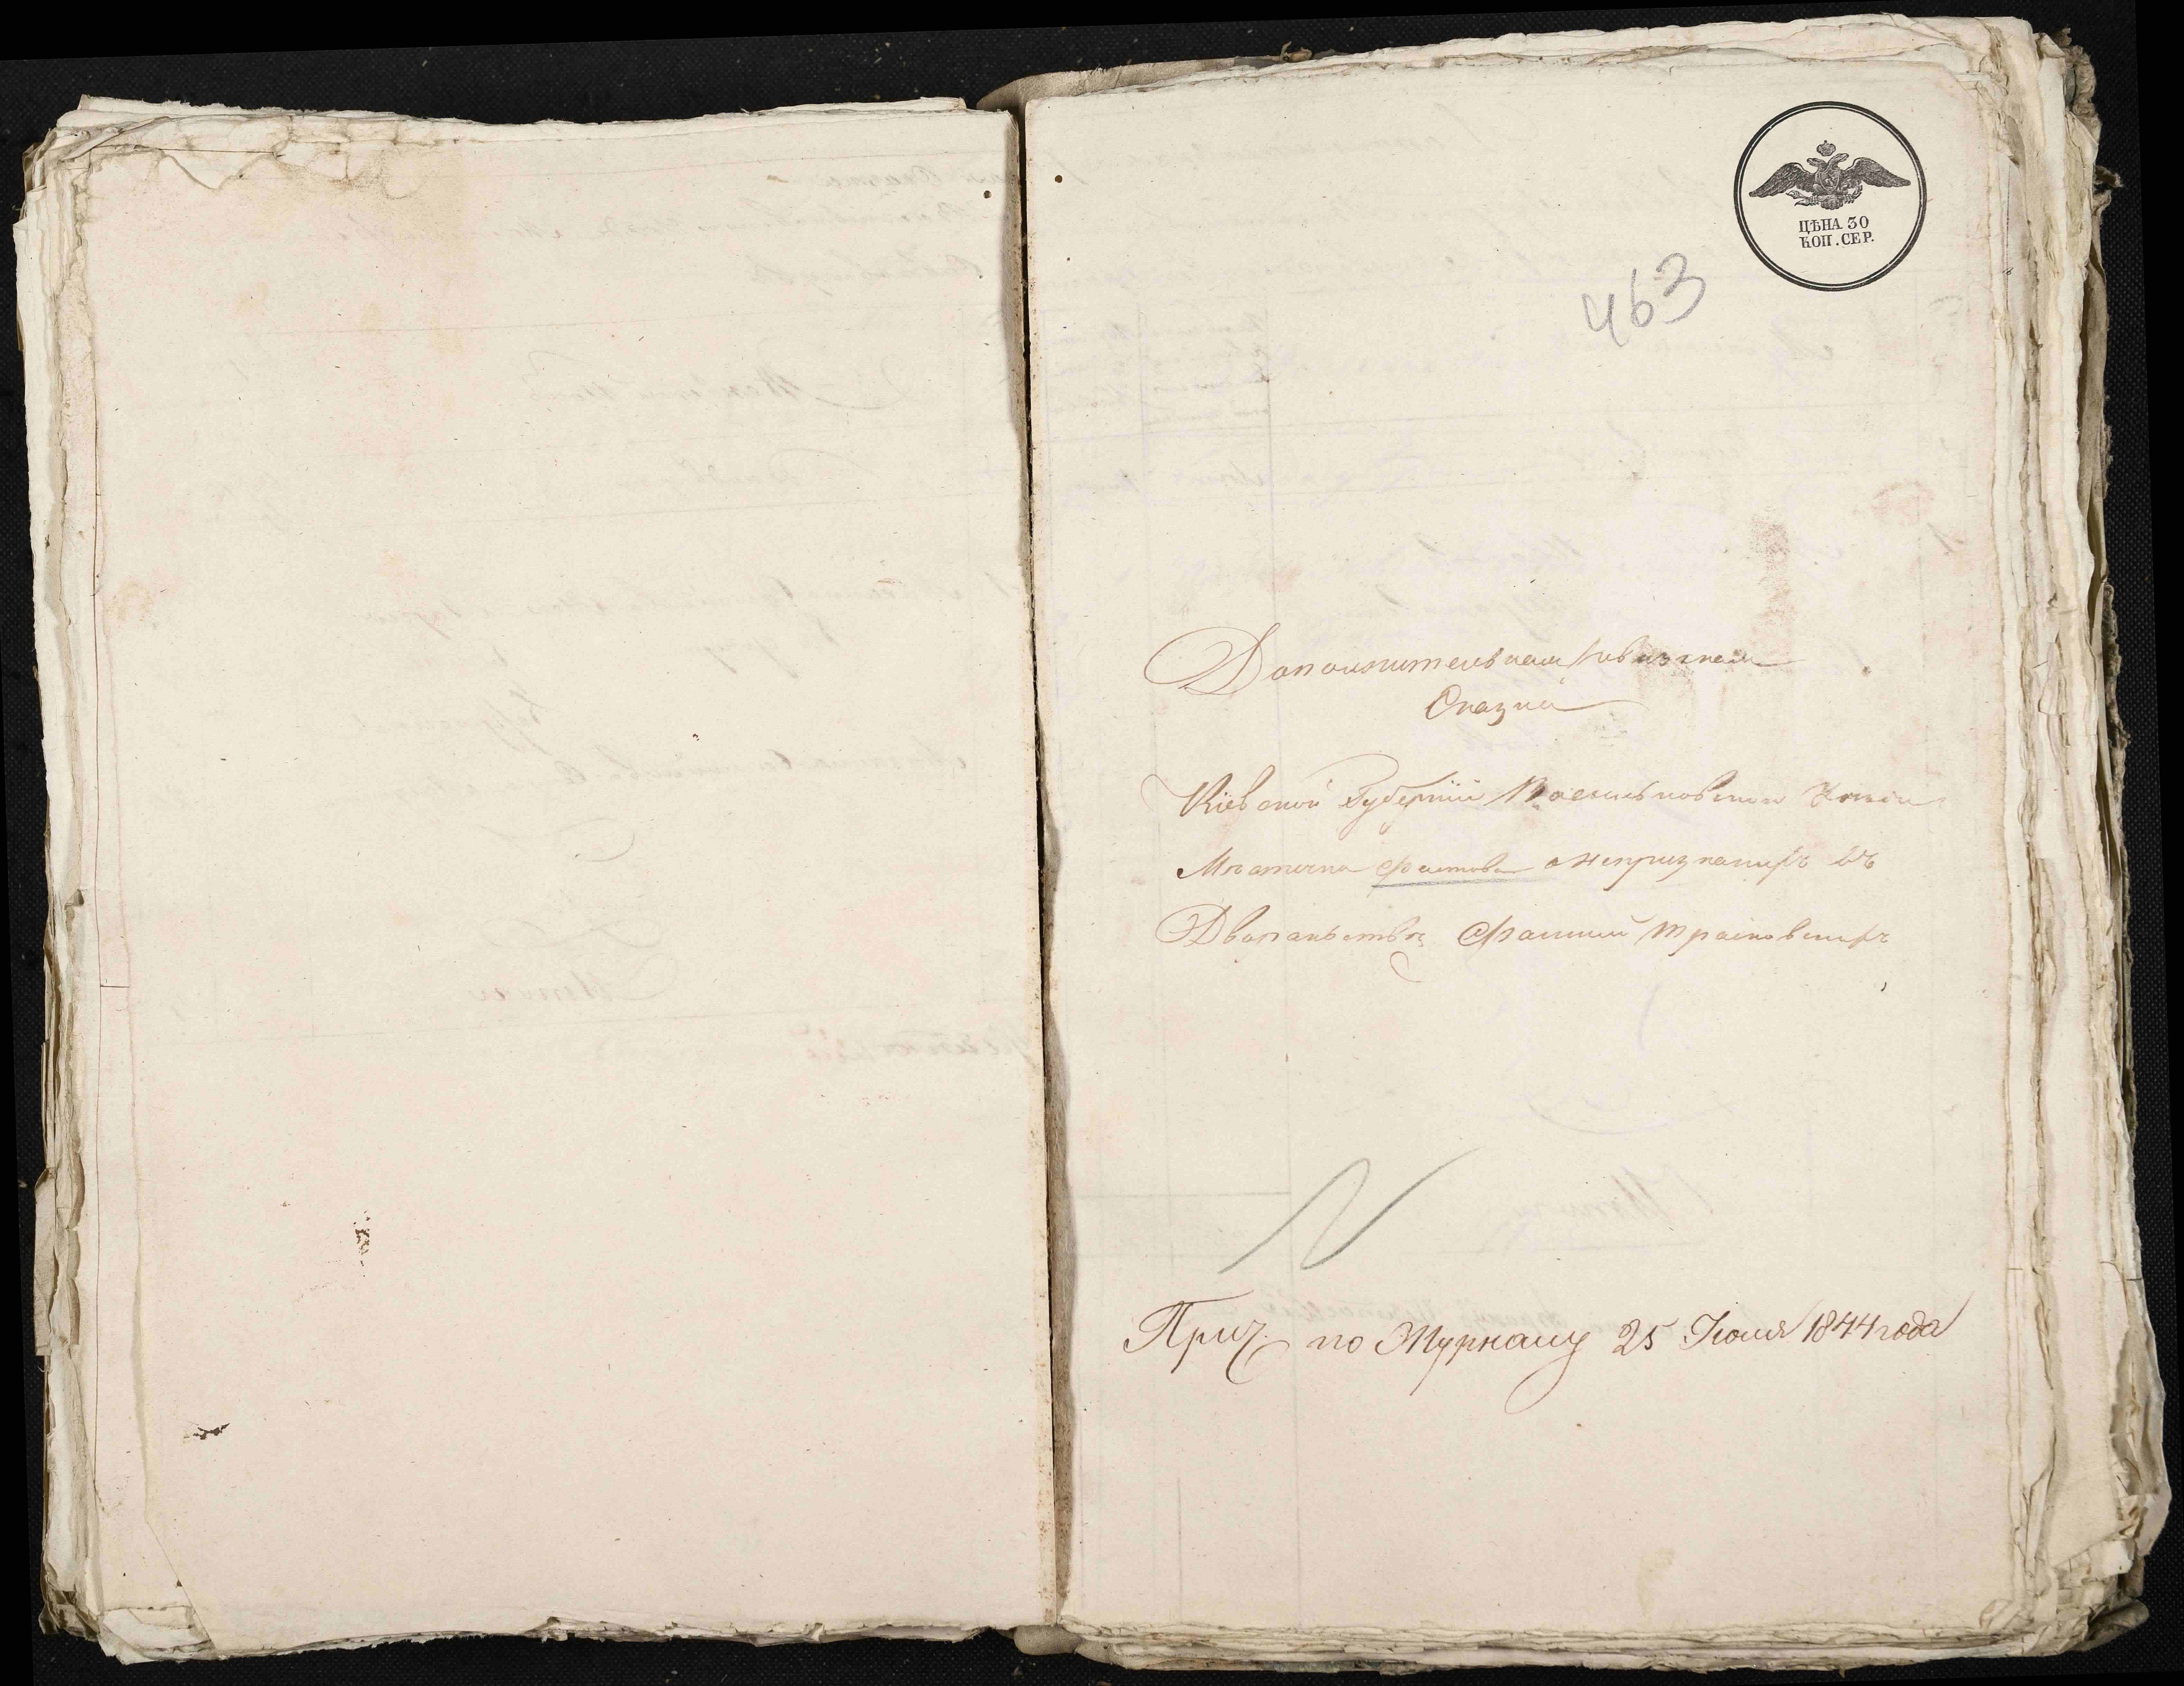 ЦѢНА 30
КОП. СЕР.
463
Дополнительная ревизская
Сказка
Кіевской Губерніи Васильковскаго Уезда
Мѣстечка Фастова о непризнаныхъ въ
Дворанствѣ Фамилій
Прич. по Журналу 25 Іюля 1844 года